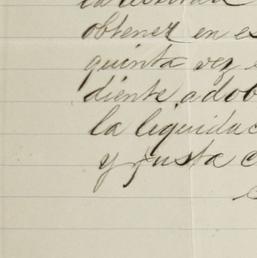 obtener en es
quinta vez
diente adob
la liquidac
y justa c